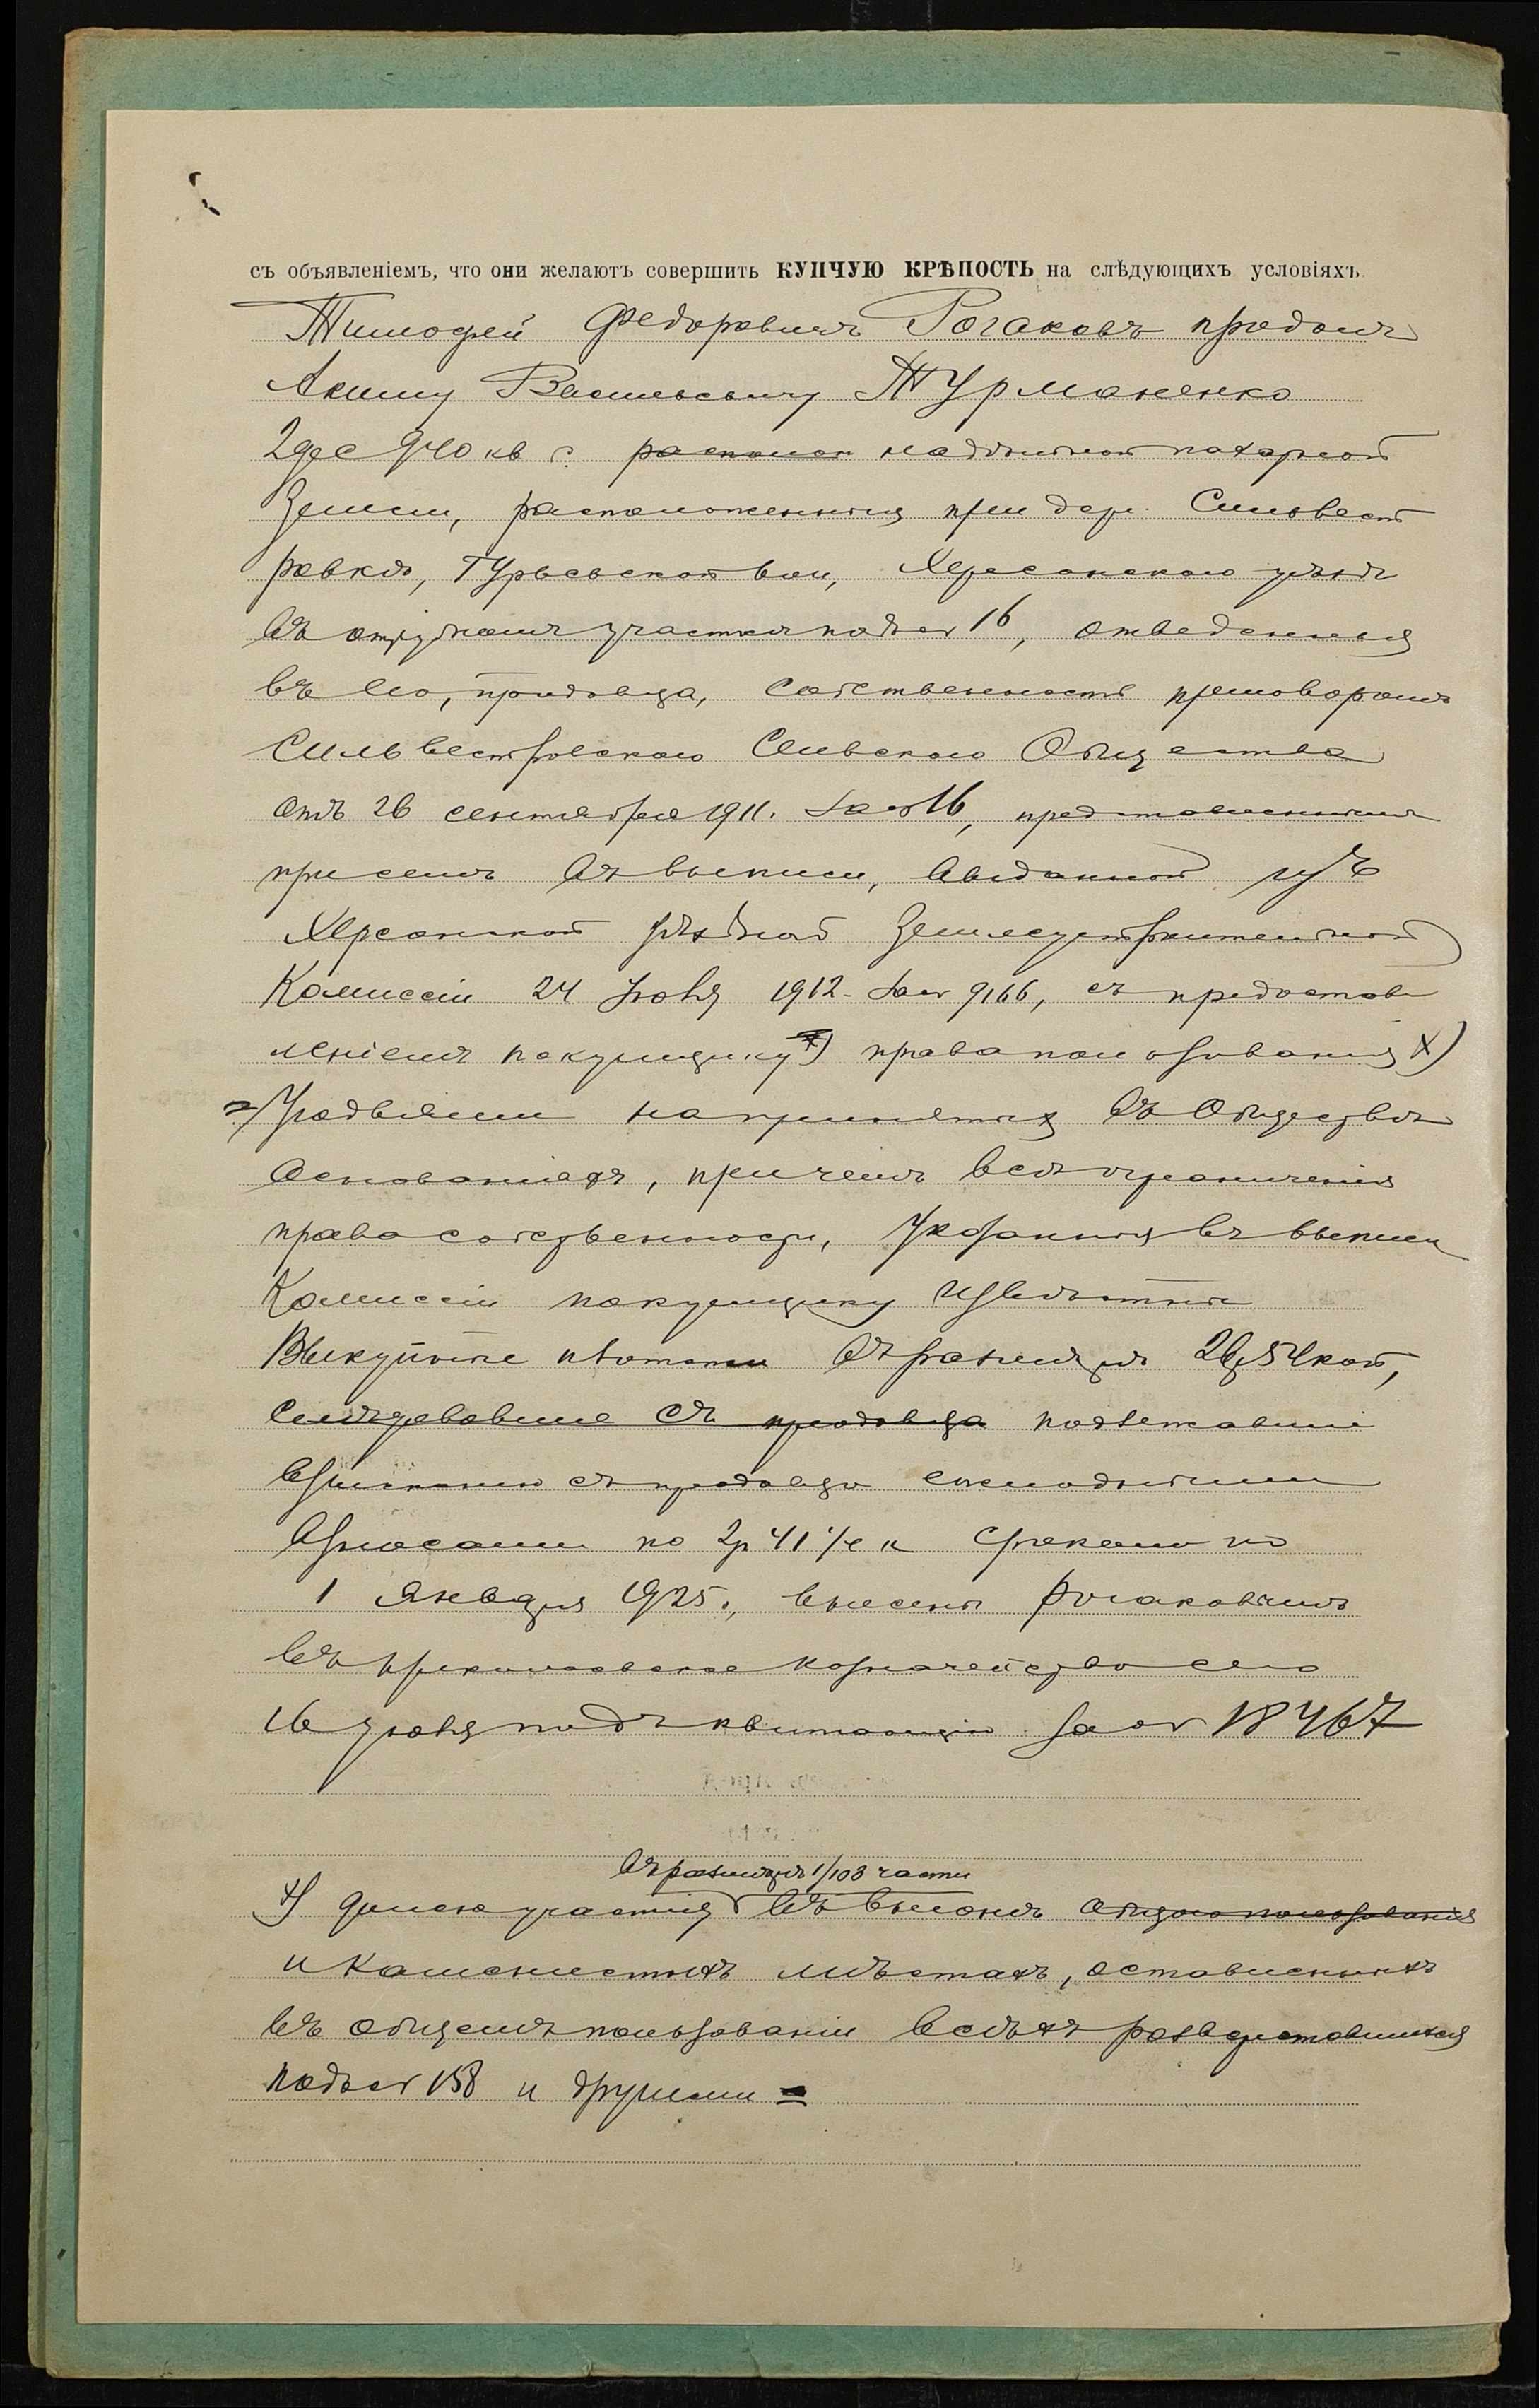 съ объявленіемъ, что они желаютъ совершить КУПЧУЮ КРѢПОСТЬ на слѣдующихъ условіяхъ.
Тимофей Федоровичъ Рогаковъ продалъ
Акиму Васильевичу Турманенко
2 дес 940 кв с. надѣльной пахарной
земли, расположенныя при дер. Сильвест
ровкѣ, Гурьевской вол, Херсонскаго уѣзда
въ отрубномъ участкѣ подъ № 16, отведенныя
въ его, продавца, собственность приговоромъ
Сильвестровскаго Сельскаго Общества
отъ 26 сентября 1911. за № 16, представленнымъ
при семъ въ выписи, выданной изъ
Херсонской уѣздной Землеустроительной
Комиссіи 24 Іюня 1912 за № 9166, съ предостав
леніемъ покупщику права пользованія х)
угодьями на принятыхъ въ Обществѣ
основаніяхъ, при чемъ всѣ ограниченія
права собственности, указанныя въ выписи
Комиссіи покупщику извѣстны
Выкупные платежи въ размѣрѣ коп,
слѣдовавшіе съ продавца подлежавшіе
взысканію съ продавца ежегодными
взносами по 2 р 41 к срокомъ по
1 Января 1925., внесены Рогаковымъ
въ казначейство сего
16 Іюня подъ квитанцію за № 18467
въ размѣрѣ 1/103 части
х) долею участія въ выгонѣ общаго пользованія
и каменистыхъ мѣстахъ, оставленныхъ
въ общемъ пользованіи всѣхъ разверставшихся
подъ № 158 и другими =